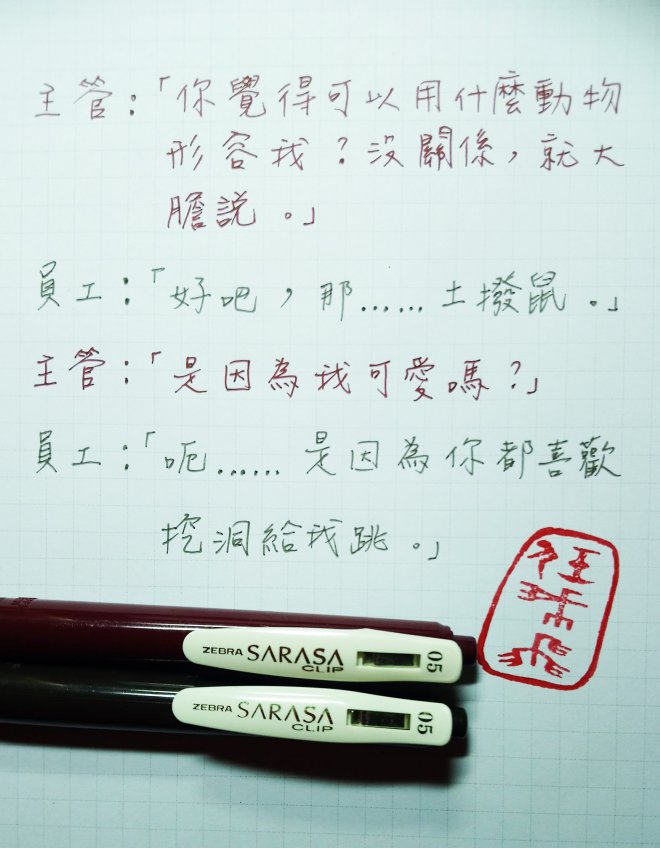 主管：「你覺得可以用什麼動物
形容我？沒關係，就大
膽說。」
員工：「好吧，那……土撥鼠。」
主管：「是因為我可愛嗎？」
員工：「呃……是因為你都喜歡
挖洞給我跳。」
ZEBRA SARASA CLIP 05
ZEBRA SARASA CLIP 05